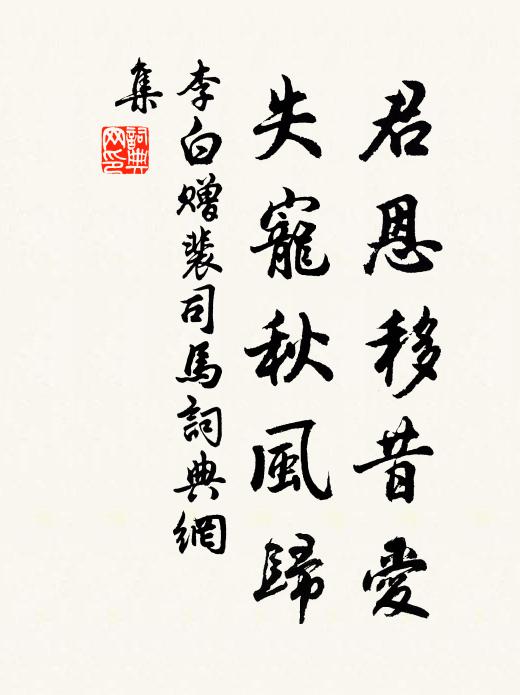 君恩移昔愛
失寵秋風歸
李白贈裴司馬詞典網
集
詞典
网印